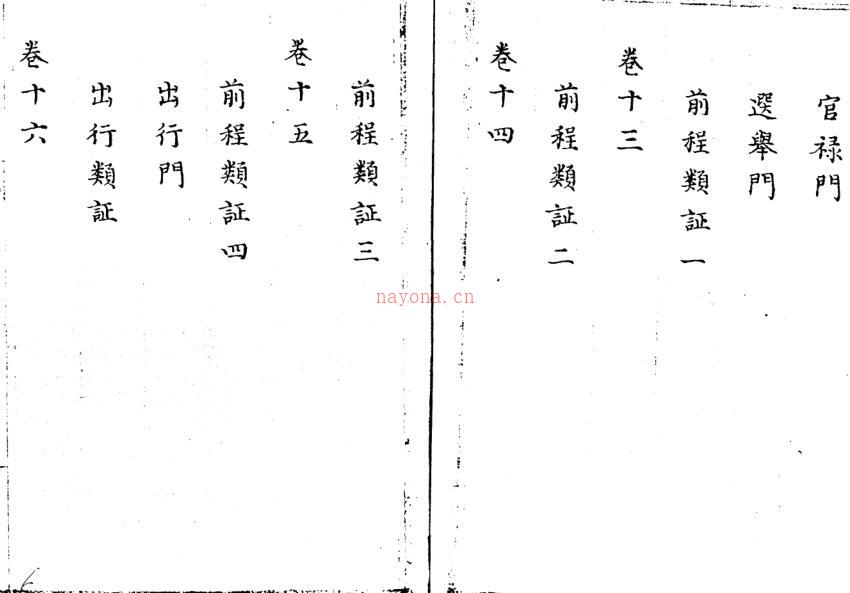 官禄門
選舉門
前程類証一
卷十三
前程類証二
卷十四
前程類証三
卷十五
前程類証四
出行門
出行類証
卷十六
nayona.cn